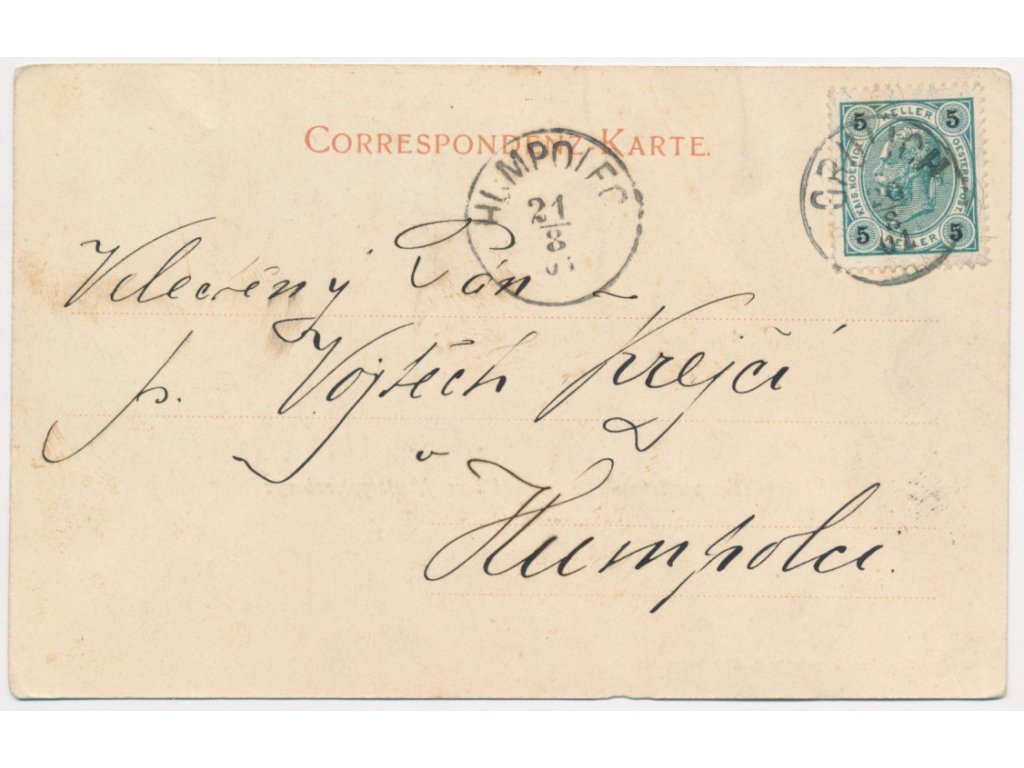 CORRESPONDENZ-KARTE.
HUMPOLEC
21
8
5 HELLER 5
KAIS. KOENIGL. OESTERR. POST
5 HELLER 5
Velectěný Pán
p. Vojtěch Krejčí
v
Humpolci